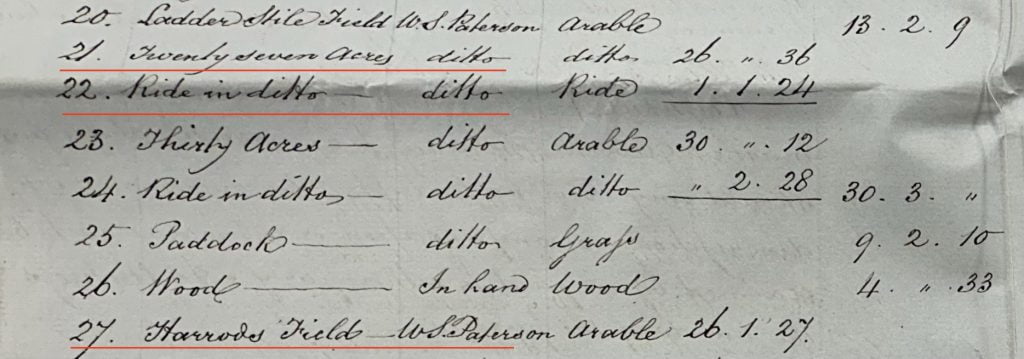 20. Ladder Stile Field W. S. Paterson Arable 13. 2. 9
21. Twenty seven Acres ditto ditto 26. „. 36
22. Ride in ditto — ditto Ride 1. 1. 24
23. Thirty Acres — ditto Arable 30. „. 12
24. Ride in ditto — ditto ditto „ 2. 28 30. 3. „
25. Paddock — ditto Grass 9. 2. 10
26. Wood — In hand Wood 4. „. 33
27. Harrods Field — W. S. Paterson Arable 26. 1. 27.